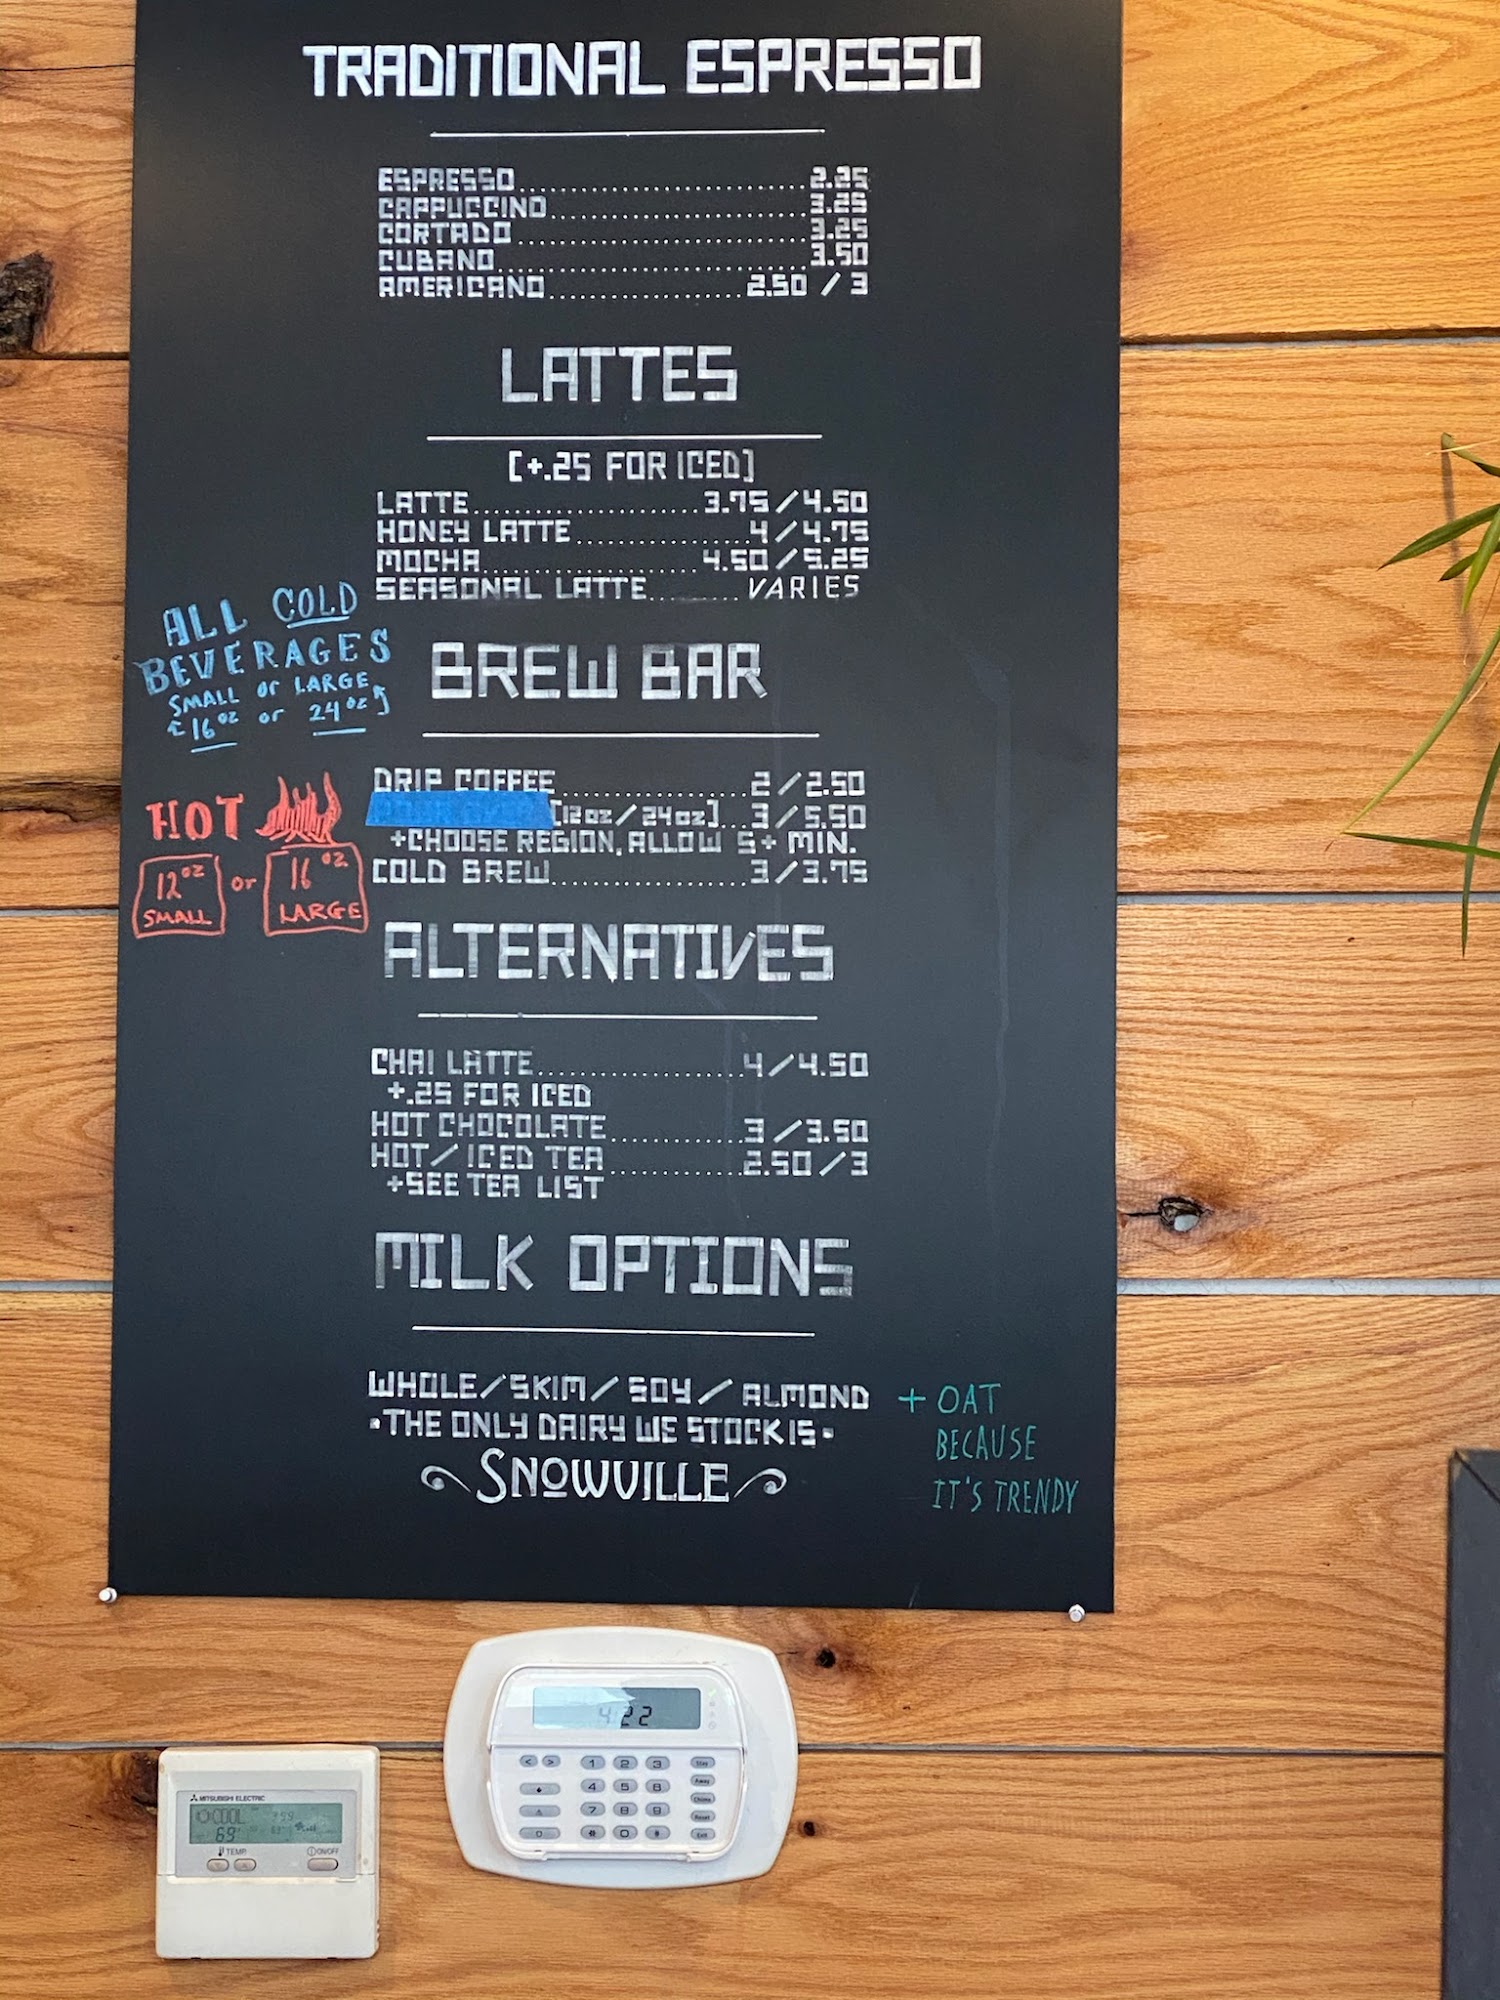 TRADITIONAL ESPRESSO
ESPRESSO............................2.25
CAPPUCCINO.........................3.25
CORTADO............................3.25
CUBANO..............................3.50
AMERICANO...................2.50 / 3
LATTES
[+.25 FOR ICED]
LATTE.......................3.75/4.50
HONEY LATTE.................4/4.75
MOCHA.....................4.50/5.25
SEASONAL LATTE......... VARIES
ALL COLD
BEVERAGES
SMALL or LARGE
[16oz or 24oz]
BREW BAR
HOT
12oz or 16oz
SMALL LARGE
DRIP COFFEE...................2/2.50
[12oz/24oz]...3/5.50
+CHOOSE REGION, ALLOW 5+ MIN.
COLD BREW...................3/3.75
ALTERNATIVES
CHAI LATTE....................4/4.50
+.25 FOR ICED
HOT CHOCOLATE.............3/3.50
HOT/ICED TEA.............2.50/3
+SEE TEA LIST
MILK OPTIONS
WHOLE/SKIM/SOY/ALMOND
•THE ONLY DAIRY WE STOCK IS•
SNOWVILLE
+ OAT
BECAUSE
IT'S TRENDY
4:22
< > 1 2 3 Stay
4 5 6 Away
7 8 9 Chime
* 0 # Reset
Exit
MITSUBISHI ELECTRIC
COOL
69
TEMP. ON/OFF